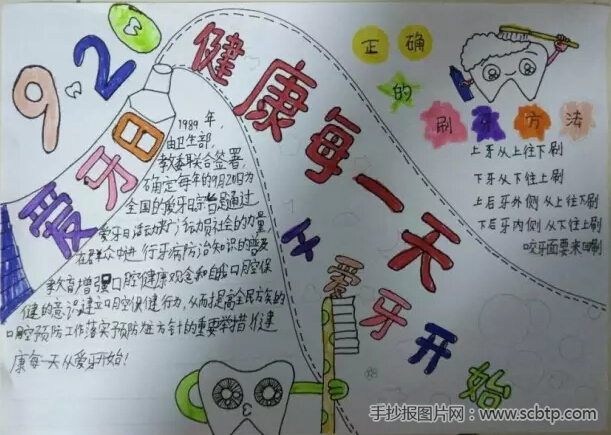 9.20
爱牙日
健康每一天
从爱牙开始
正确
的
刷牙方法
上牙从上往下刷
下牙从下往上刷
上后牙外侧从上往下刷
下后牙内侧从下往上刷
咬牙面要来回刷
1989年,
由卫生部,
教委联合签署,
确定每年的9月20日为
全国的爱牙日宗旨是通过
爱牙日活动广泛动员社会的力量
在群众中进行牙病防治知识的普及
教育增强口腔健康观念和自我口腔保
健的意识建立口腔保健行为,从而提高全民族的
口腔预防工作落实预防为方针的重要举措!健
康每一天从爱牙开始!
手抄报图片网:www.scbtp.com